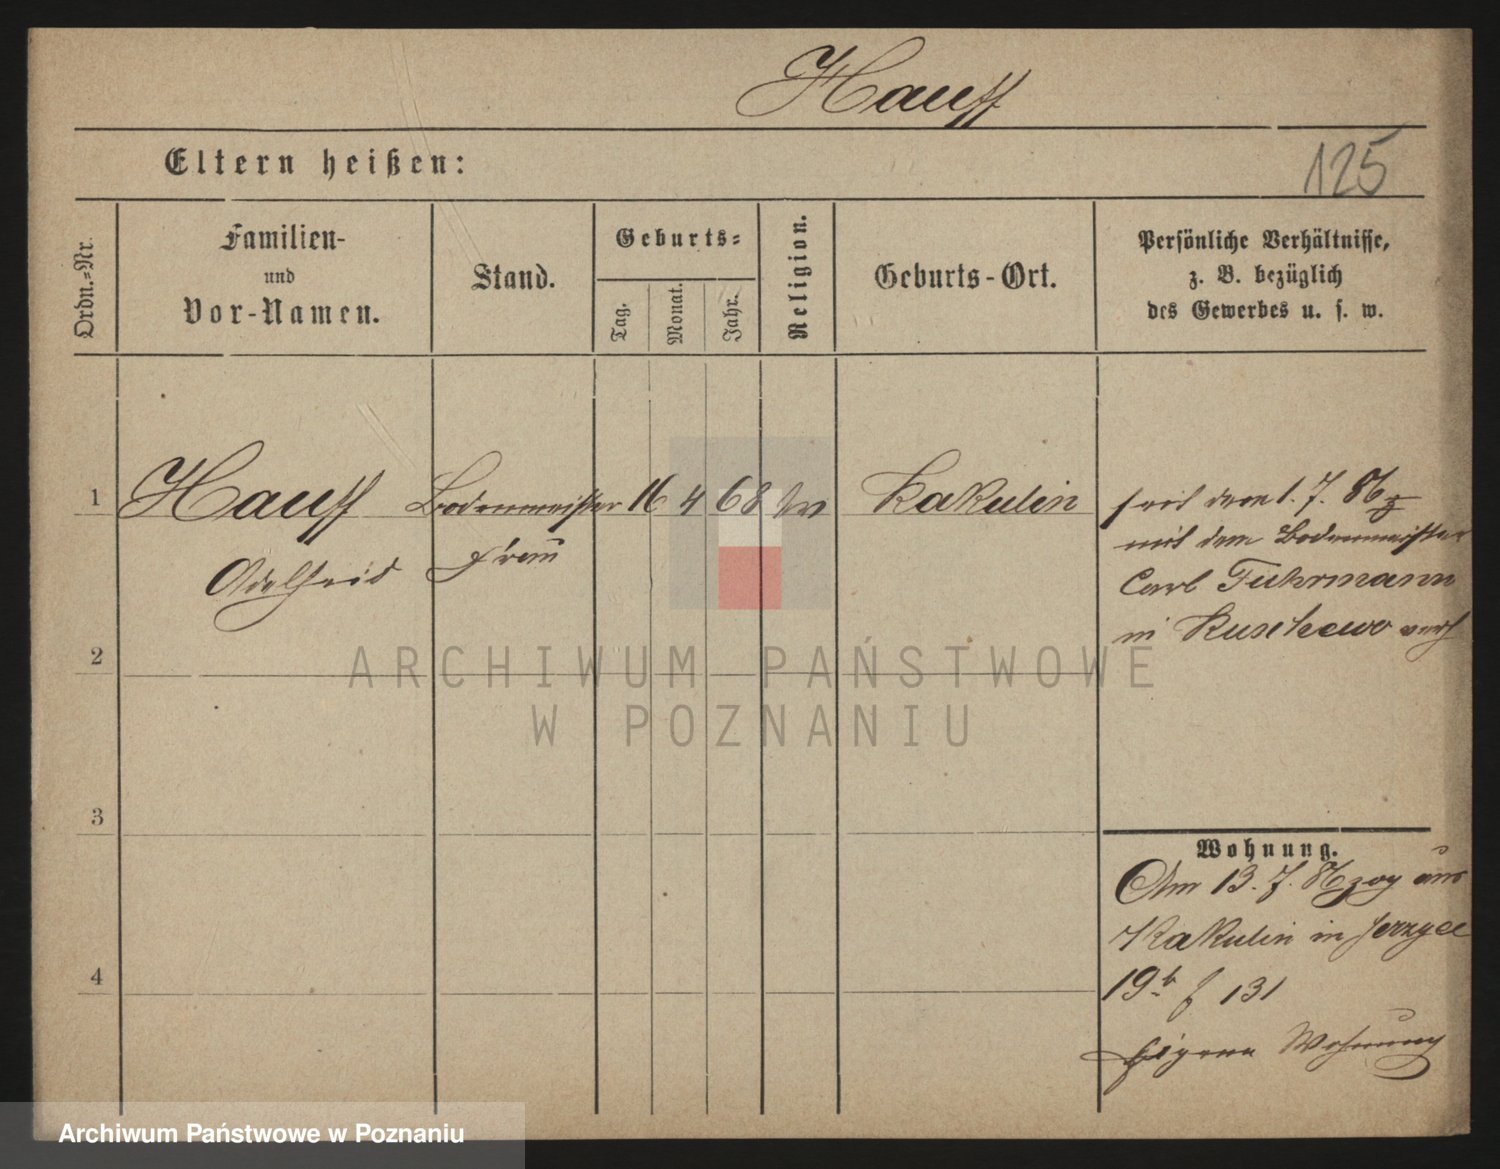 Hauff
Eltern heißen:
125
Ordn.-Nr.
Familien-
und
Vor-Namen.
Stand.
Geburts-
Tag.
Monat.
Jahr.
Religion.
Geburts-Ort.
Persönliche Verhältnisse,
z. B. bezüglich
des Gewerbes u. s. w.
1 Hauff Bodenmeister 16 4 68 Kakulin
Adelheid Frau
seit dem 1. 7.
mit dem Bodenmeister
Carl Fuhrmann
in Ruschewo verh
2
ARCHIWUM PAŃSTWOWE
W POZNANIU
3
4
Wohnung.
Am 13. 7. zog aus
Kakulin in Jerzyce
19b f 131
Eigene Wohnung
Archiwum Państwowe w Poznaniu